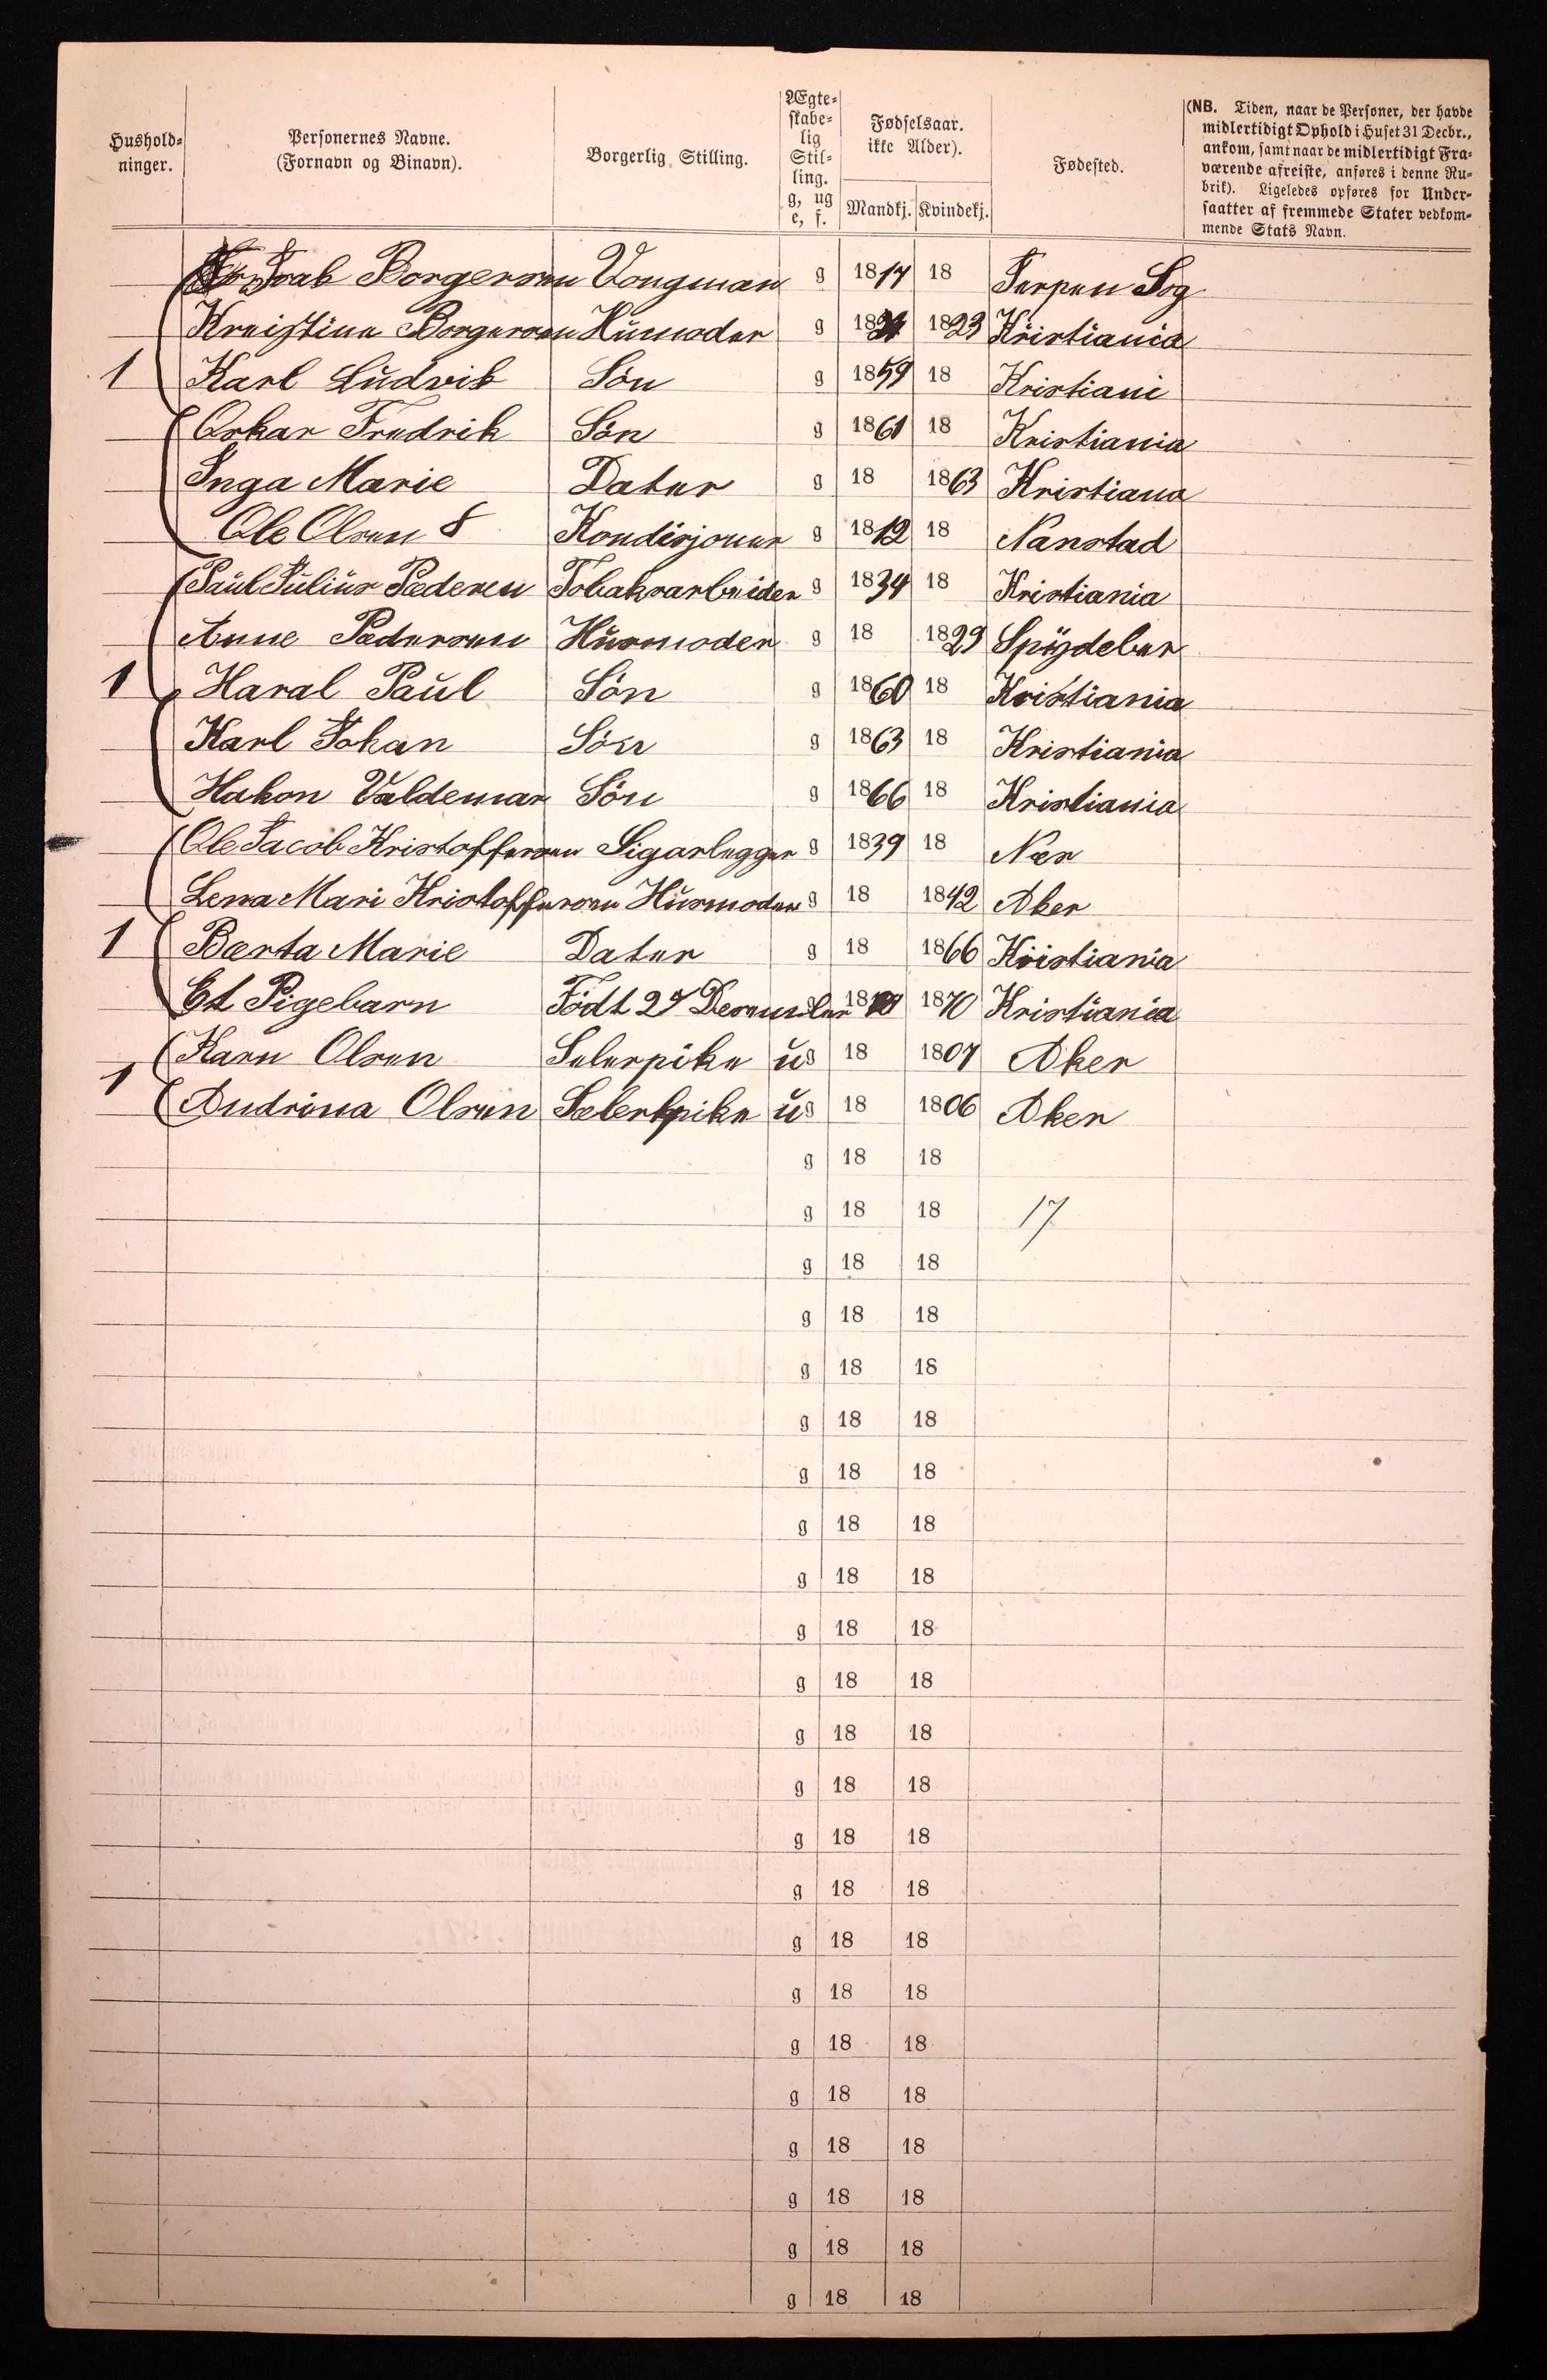 Hushold-
ninger.
Personernes Navne.
(Fornavn og Binavn).
Borgerlig Stilling.
Ægte-
skabe-
lig
Stil-
ling.
g, ug
e, f.
Fødselsaar.
ikke Alder).
Mandkj. Kvindekj.
Fødested.
(NB. Tiden, naar de Personer, der havde
midlertidigt Ophold i Huset 31 Decbr.,
ankom, samt naar de midlertidigt Fra-
værende afreiste, anføres i denne Ru-
brik). Ligeledes opføres for Under-
saatter af fremmede Stater vedkom-
mende Stats Navn.
Borgersen Vongman g 1814 18 Sog
Kreistine Borgersen Husmoder g 18 1823 Kristiania
1 Karl Ludvik Sön g 1859 18 Kristiani
Oskar Fredrik Sön g 1861 18 Kristiania
Inga Marie Dater g 18 1863 Kristiana
Ole Olsen Kondisjoner g 1812 18 Nanstad
Paul Julius Pedersen Tobaksarbeider g 1834 18 Kristiania
Anne Pedersen Husmoder g 18 1829 Spydeber
1 Haral Paul Sön g 1860 18 Kristiania
Karl Johan Sön g 1863 18 Kristiania
Hakon Valdemar Sön g 1866 18 Kristiania
Ole Jacob Kristoffersen Sigarlegger g 1839 18 Næs
Lena Mari Kristoffersen Husmoder g 18 1842 Aker
1 Bærta Marie Dater g 18 1866 Kristiania
Et Pigebarn Födt 27 Desember 18 1870 Kristiania
Karn Olsen Selerpike ug 18 1807 Aker
1
Andrina Olsen Selerpike ug 18 1806 Aker
g 18 18
g 18 18 17
g 18 18
g 18 18
g 18 18
g 18 18
g 18 18
g 18 18
g 18 18
g 18 18
g 18 18
g 18 18
g 18 18
g 18 18
g 18 18
g 18 18
g 18 18
g 18 18
g 18 18
g 18 18
g 18 18
g 18 18
g 18 18